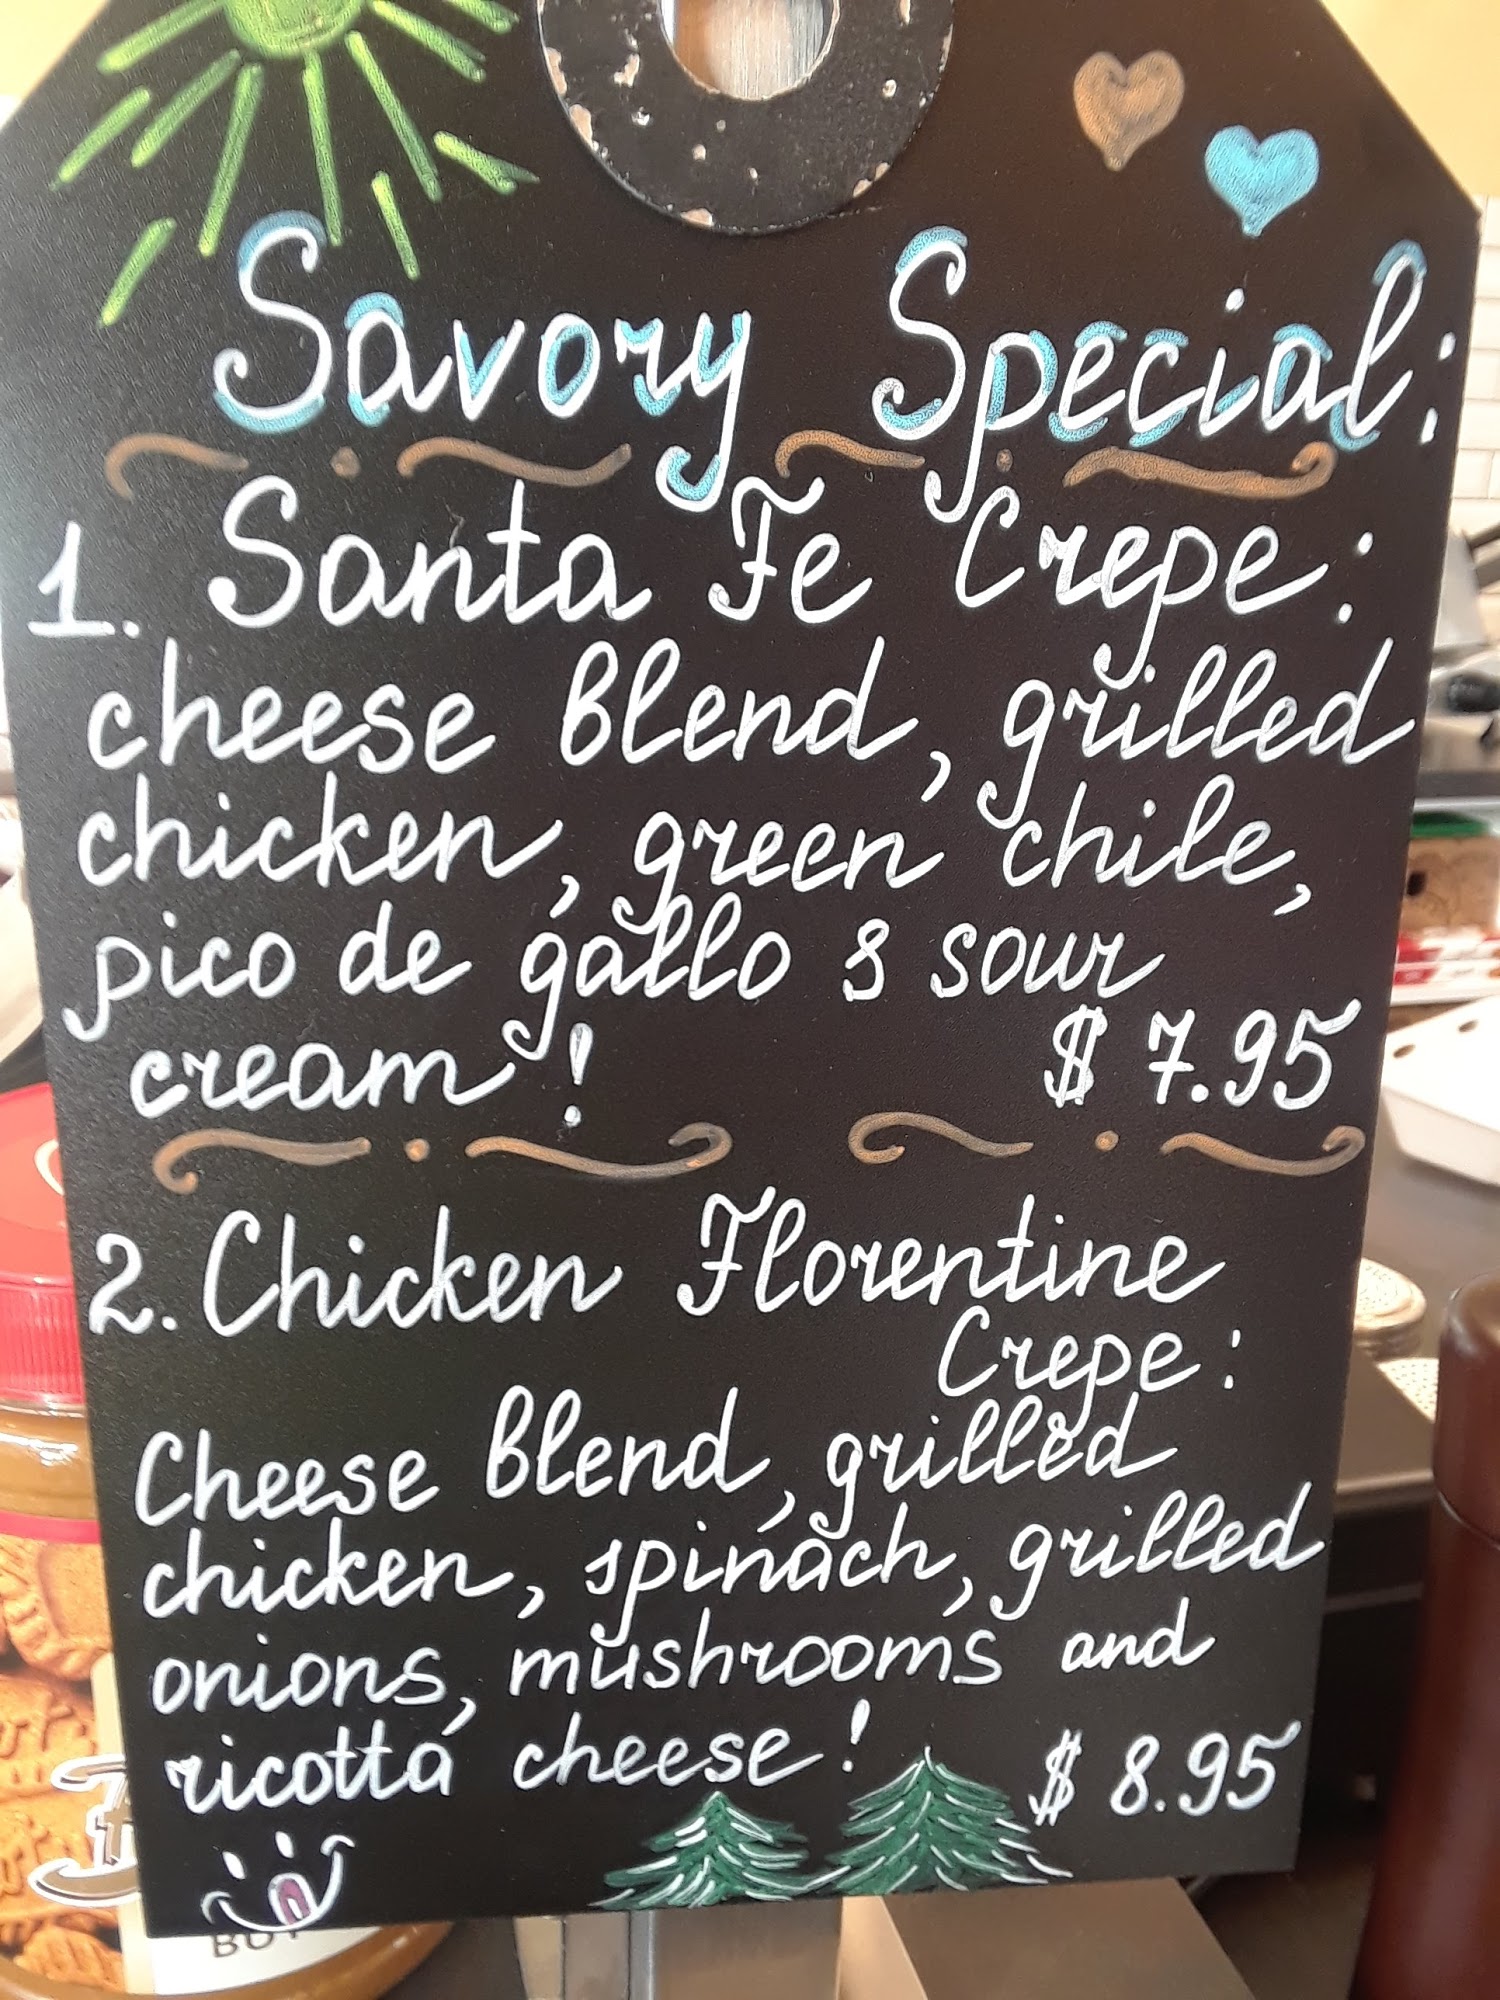 Savory Special:
1. Santa Fe Crepe:
cheese blend, grilled
chicken, green chile,
pico de gallo & sour
cream!
$ 7.95
2. Chicken Florentine
Crepe:
Cheese blend, grilled
chicken, spinach, grilled
onions, mushrooms and
ricotta cheese!
$ 8.95